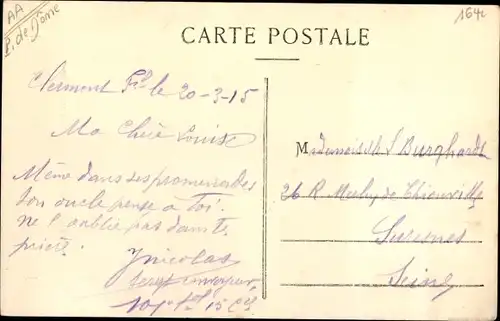 AA
P. de Dôme
164
CARTE POSTALE
Clermont Fd le 20-3-15
Ma Chère Louise
Même dans ses promenades
ton oncle pense à Toi.
ne l'oublie pas dans tes
prière.
JNicolas
15 Cie
Mademoiselle L Burghardt
26 R de
Suresnes
Seine